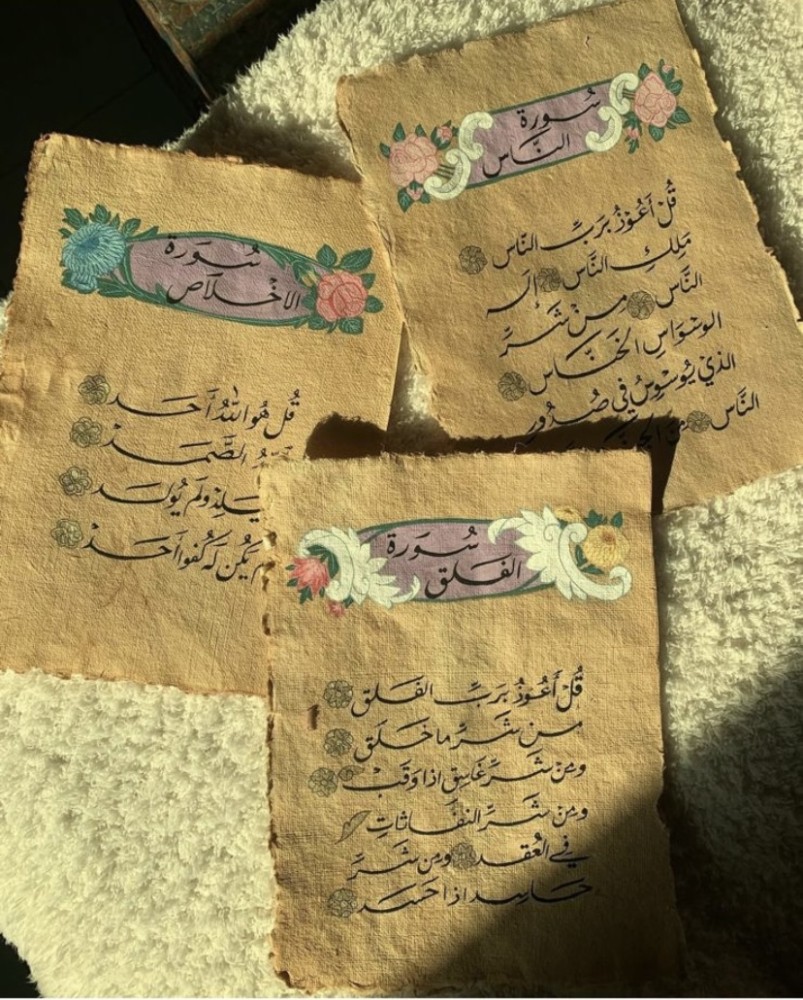 سُورَة
النَّاس
قُلْ أَعُوْذُ بِرَبِّ النَّاس
مَلِكِ النَّاس إِلَه
النَّاس مِنْ شَرِّ
الوَسْوَاسِ الخَنَّاس
الذي يُوَسْوِسُ فِي صُدُورِ
النَّاس مِنَ
سُورَة
الاخْلَاص
قُلْ هُوَ اللّٰهُ أَحَد
الصَّمَدْ
يَلِدْ وَلَمْ يُولَد
يَكُنْ لَهُ كُفُوًا أَحَدْ
سُورَة
الفَلَق
قُلْ أَعُوْذُ بِرَبِّ الفَلَق
مِنْ شَرِّ ما خَلَق
وَمِنْ شَرِّ غَاسِقٍ اذا وَقَبْ
وَمِنْ شَرِّ النفَّاثَاتِ
فِي العُقَد وَمِن شَرِّ
حَاسِد اذا حَسَد